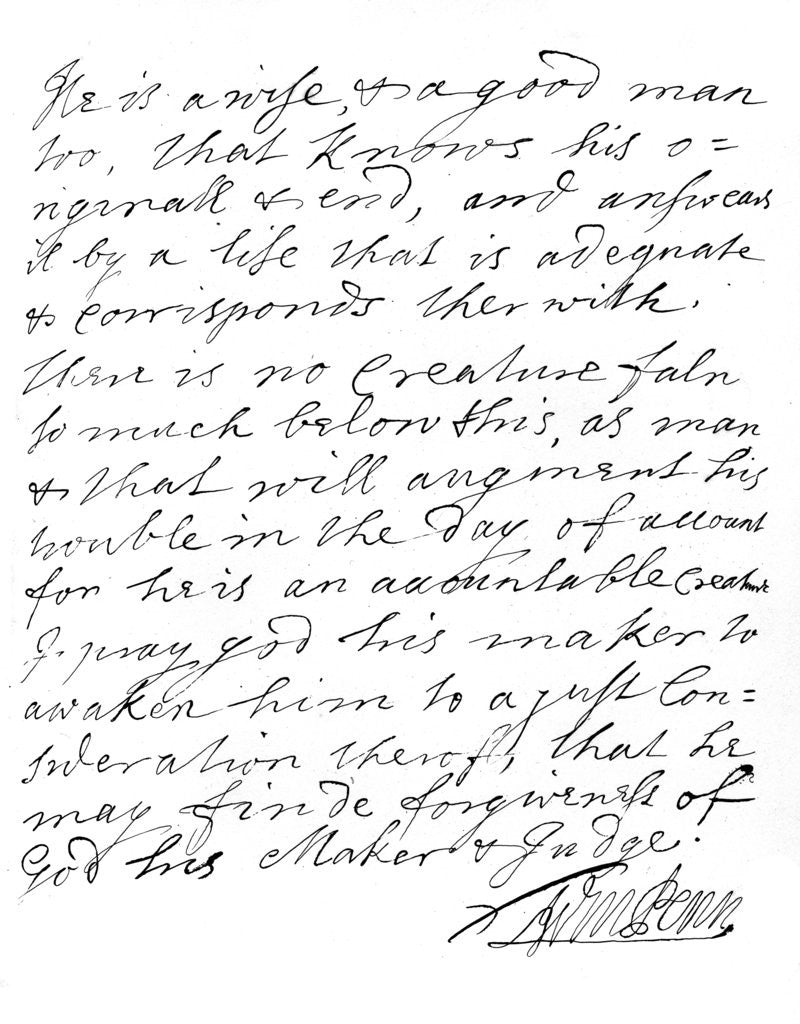 He is a wise, & a good man
too, that knows his o=
riginall & end, and answears
it by a life that is adequate
& corrisponds therwith.
there is no Creature faln
so much below this, as man
& that will augment his
trouble in the day of account
for he is an accountable Creature
I pray god his maker to
awaken him to a just Con=
sideration therof, that he
may finde forgiveness of
God his Maker & Judge.
Wm Penn